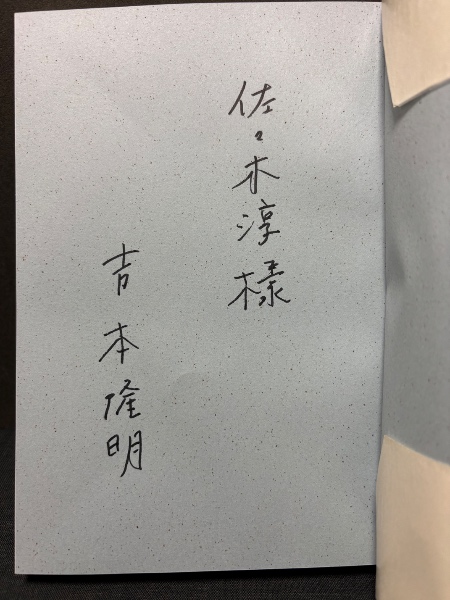 佐々木淳様
吉本隆明